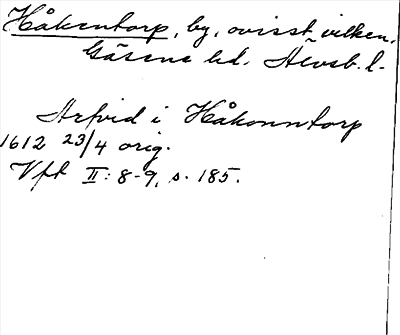 Håkentorp, by, ovisst vilken,
Gäsene hd. Älvsb. l.
Arfvid i Håkonntorp
1612 23/4 orig.
Vft II: 8-9, s. 185.